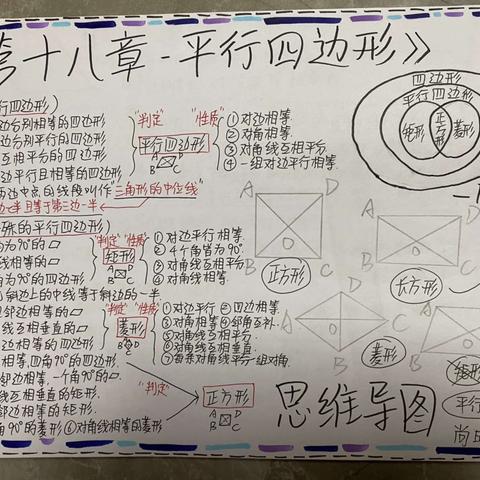 第十八章-平行四边形》
四边形
平行四边形
矩形 正方形 菱形
行四边形)
边分别相等的四边形
边分别平行的四边形
互相平分的四边形
边平行且相等的四边形
两边中点的线段叫作三角形的中位线
边且等于第三边一半
"判定" "性质"
平行四边形
A D
B C
①对边相等
②对角相等
③对角线互相平分
④一组对边平行相等.
殊的平行四边形)
角为90°的▱
线相等的▱
角为90°的四边形
斜边上的中线等于斜边的一半
"判定" "性质"
矩形
A D
B C
①对边平行相等.
②4个角皆为90°
③对角线互相平分
④对角线相等.
邻边相等的▱
线互相垂直的▱
边相等的四边形
"判定" "性质"
菱形
A D
B C
①对边平行 ②四边相等.
③对角相等④邻角互补.
⑤对角线互相平分
⑥对角线互相垂直.
⑦每条对角线平分一组对角.
相等,四角90°的四边形
邻边相等,一个角90°的▱.
线互相垂直的矩形.
邻边相等的矩形.
角90°的菱形⑥对角线相等的菱形
"判定"
正方形
A D
B C
A D
O
B C
正方形
A D
O
B C
长方形
A D
O
B C
菱形
A
O
B
矩形
平行
思维导图
尚